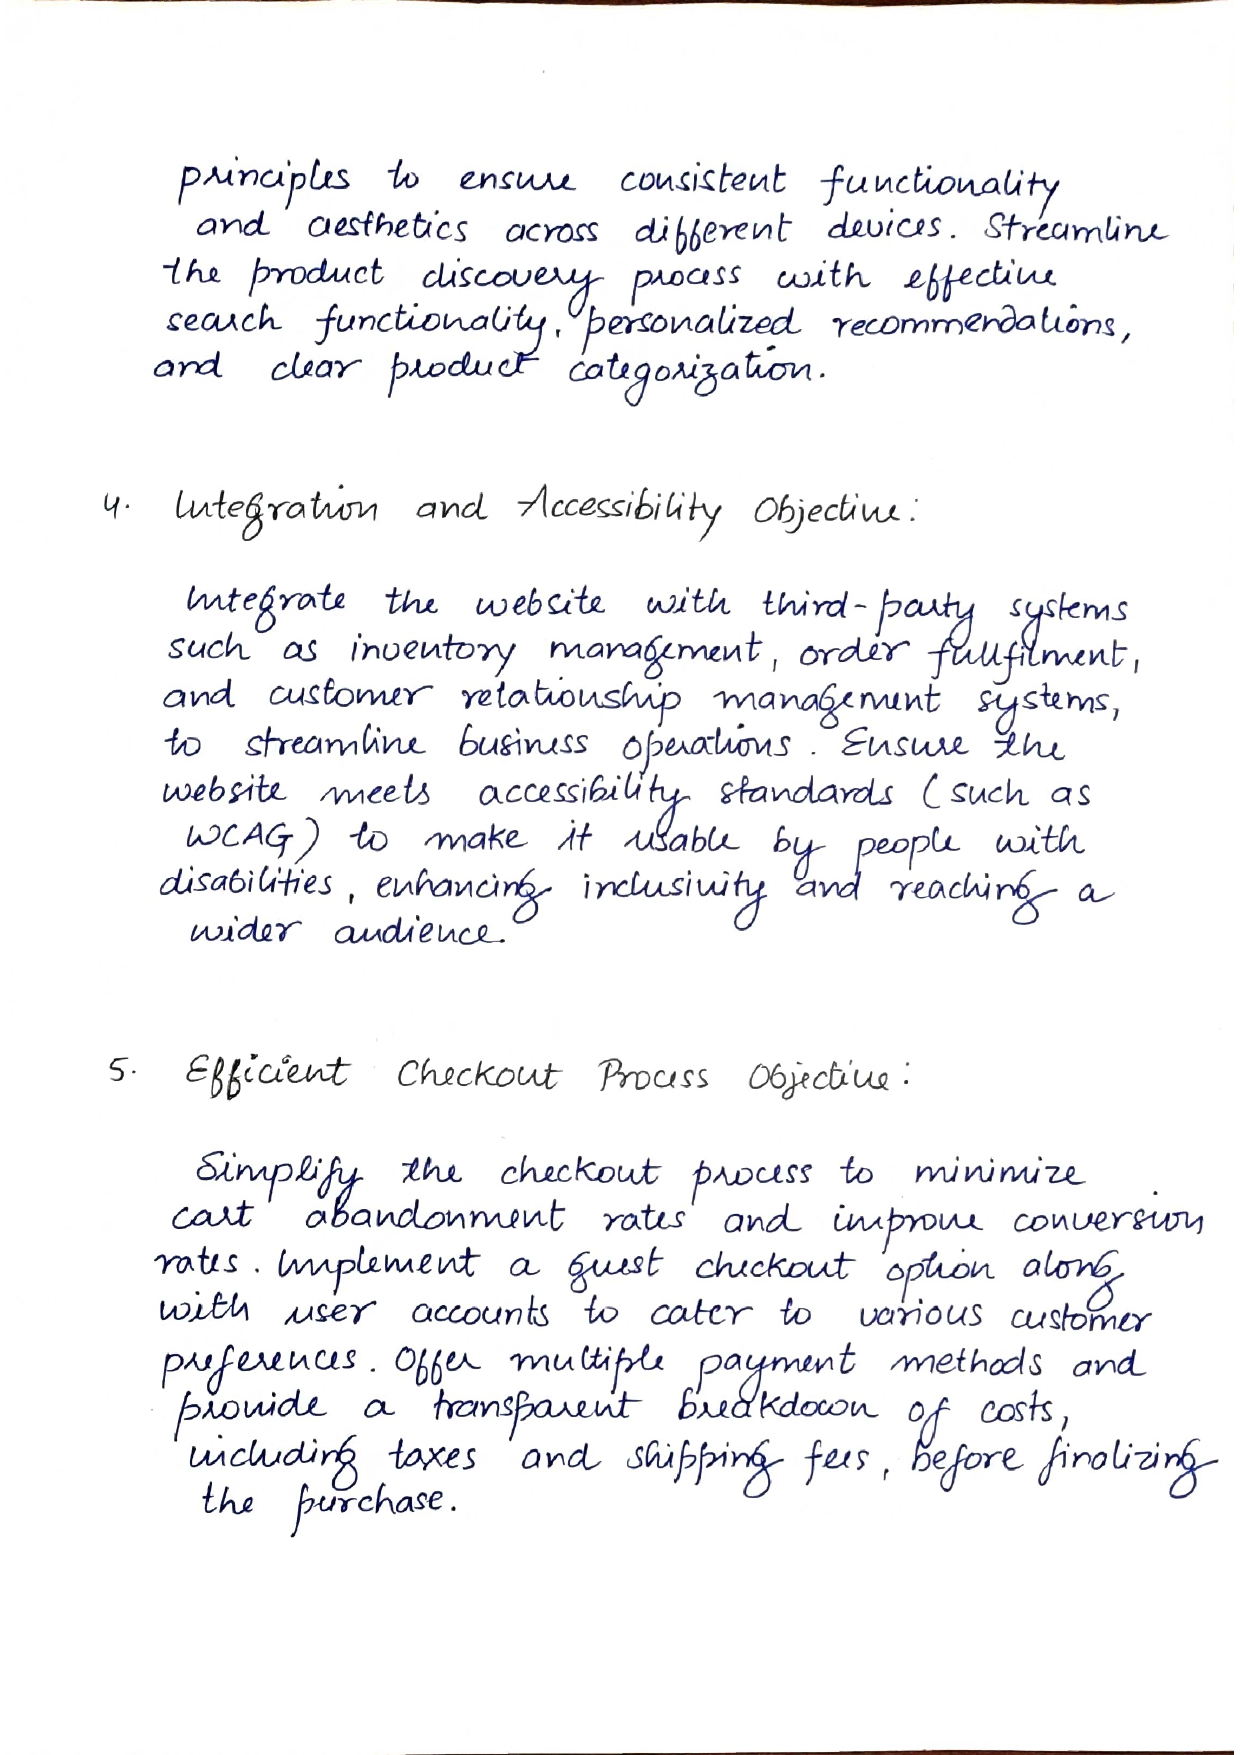 principles to ensure consistent functionality
and aesthetics across different devices. Streamline
the product discovery process with effective
search functionality, personalized recommendations,
and clear product categorization.
4. Integration and Accessibility Objective:
Integrate the website with third-party systems
such as inventory management, order fullfilment,
and customer relationship management systems,
to streamline business operations. Ensure the
website meets accessibility standards (such as
WCAG) to make it usable by people with
disabilities, enhancing inclusivity and reaching a
wider audience.
5. Efficient Checkout Process Objective:
Simplify the checkout process to minimize
cart abandonment rates and improve conversion
rates. Implement a guest checkout option along
with user accounts to cater to various customer
preferences. Offer multiple payment methods and
provide a transparent breakdown of costs,
including taxes and shipping fees, before finalizing
the purchase.